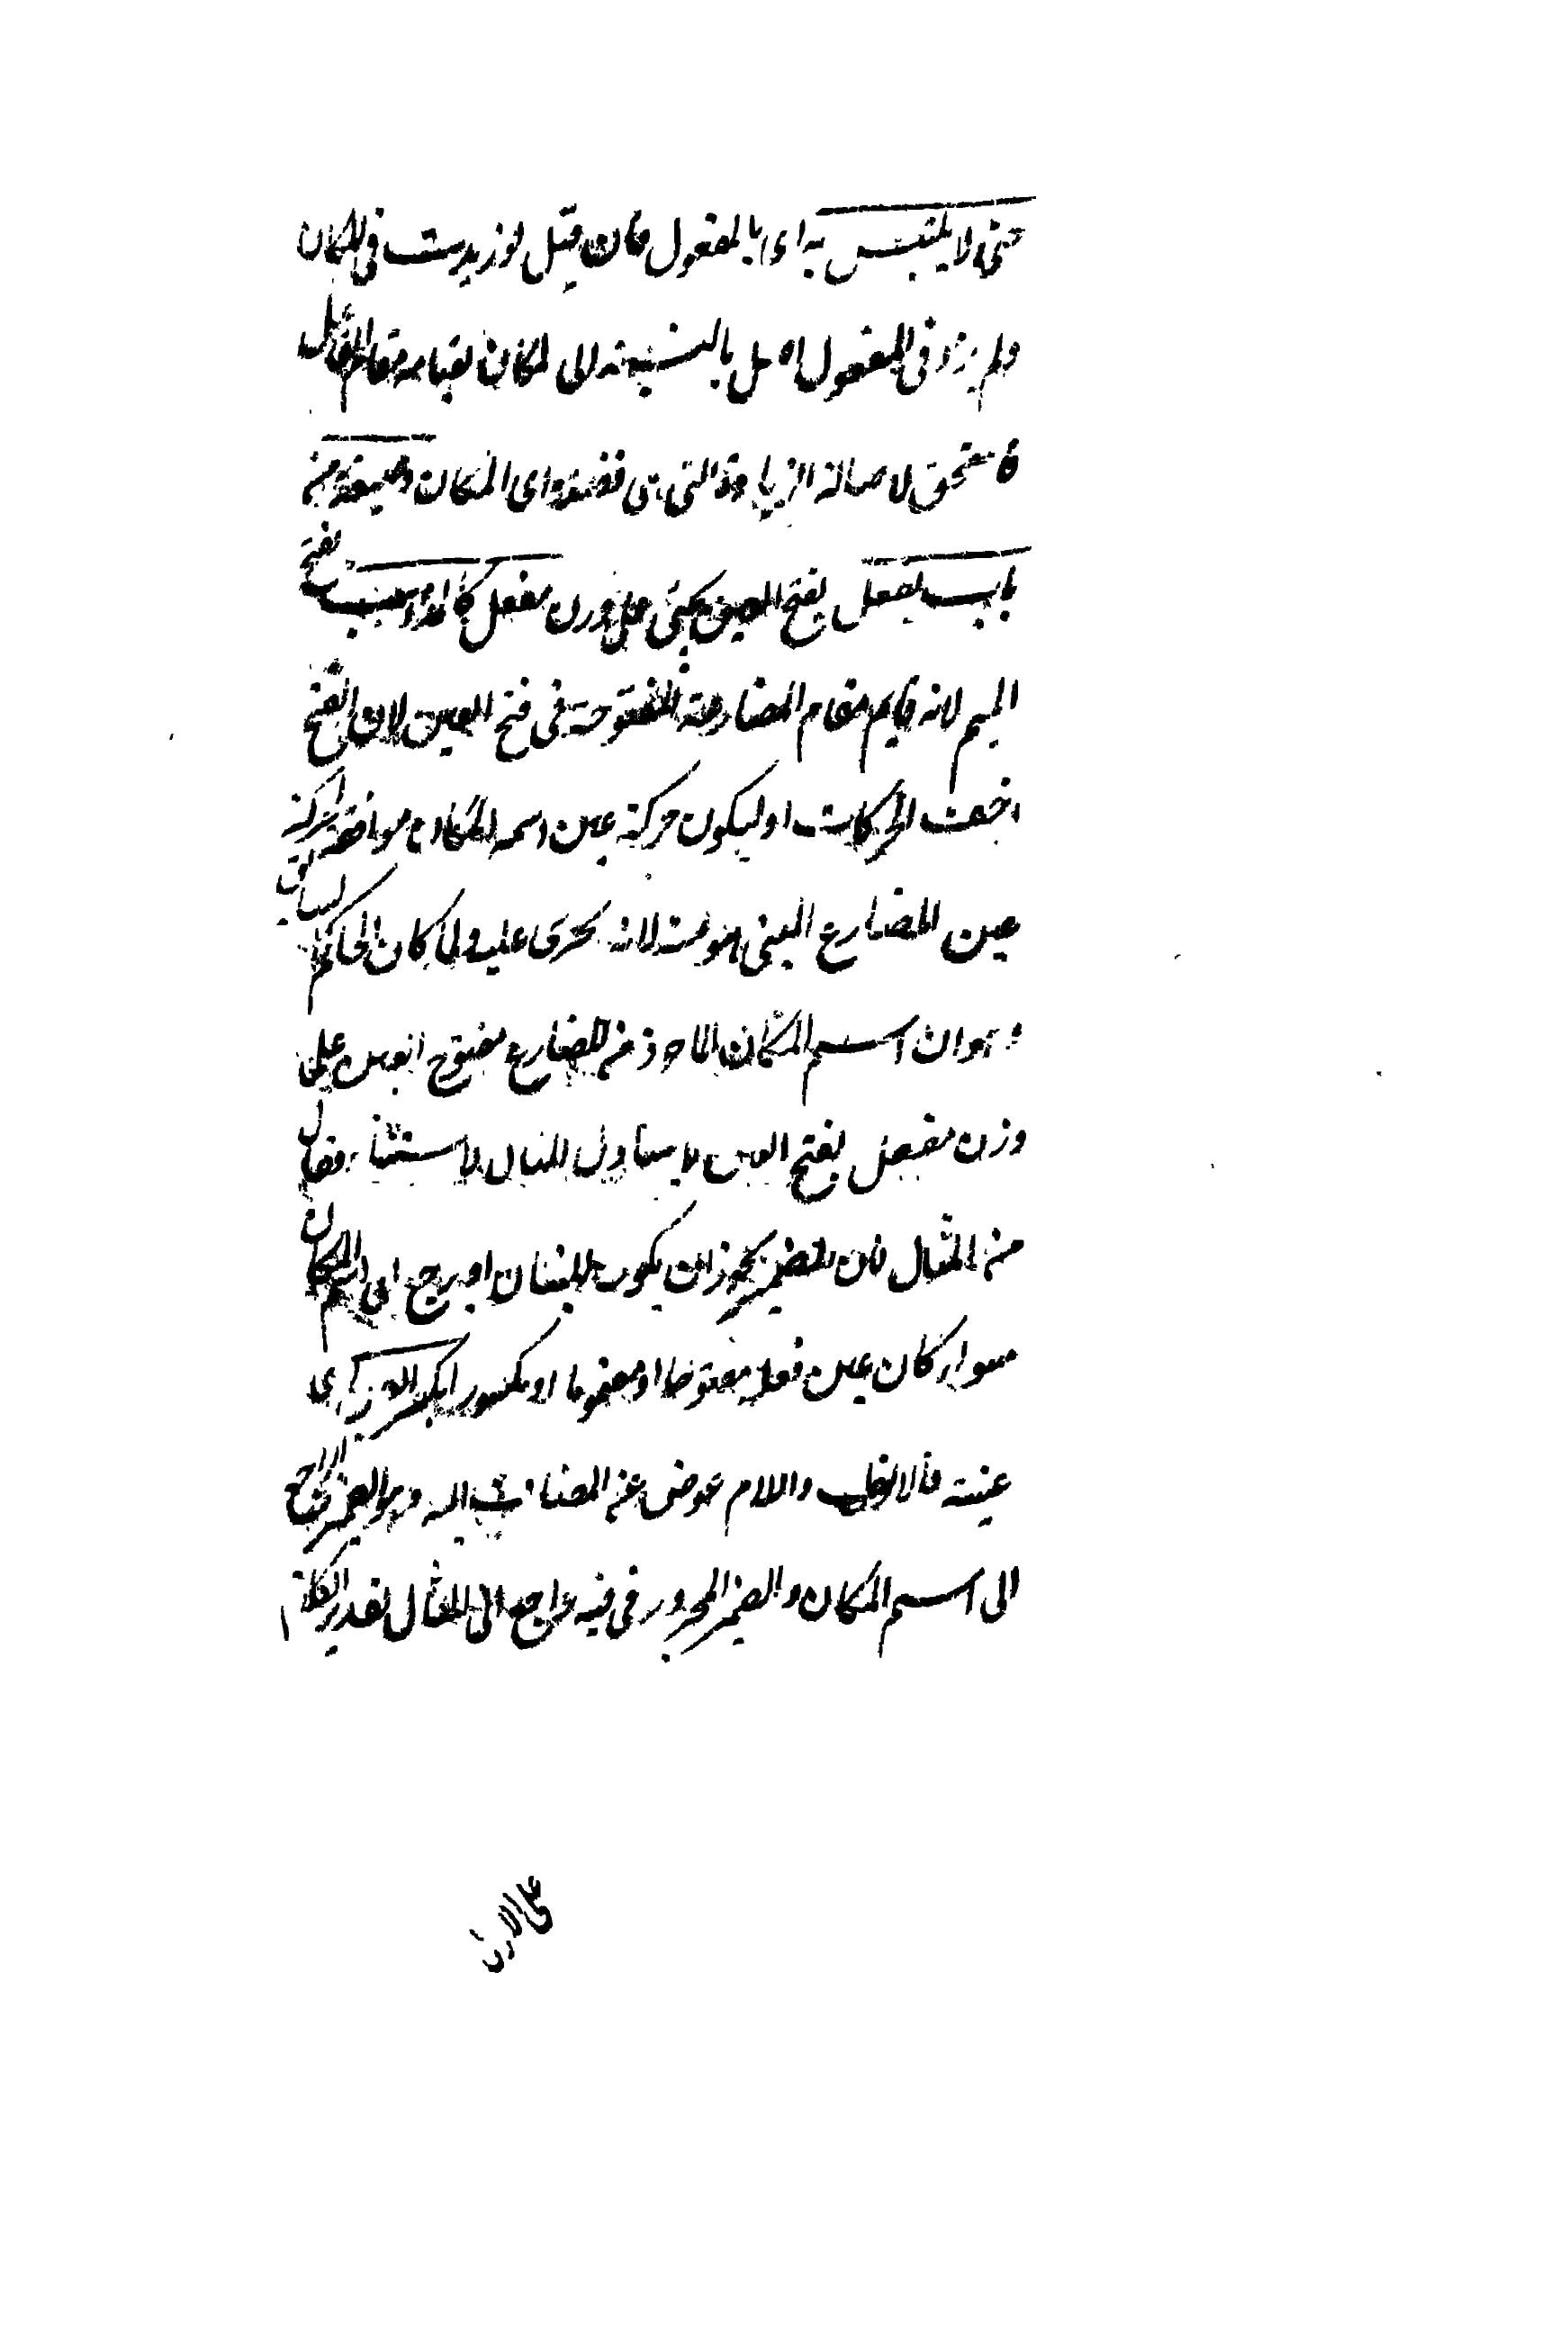 حتى لا يلتبس به اى بالمفعول فان قيل لو زيدت فى المكان
ولم يزد فى المفعول اصل بالنسبة الى المكان لقيامه مقام الفاعل
فاستحق لاصالة الزيادة التى هى فضلة اى المكان وصيغته من
باب يفعل بفتح العين يجئ على وزن مفعل كالمذهب بفتح
الميم لانه قايم مقام المضارعة المفتوحة فى فتح العين لان الفتح
اخف الحركات او ليكون حركة عين اسم المكان موافقة لحركة
عين المضارع المبنى هو منه لانه يجرى عليه ولما كان الحاكم لسابق
وهوان اسم المكان الماخوذ من المضارع مفتوح العين على
وزن مفعل بفتح العين لا يتناول المثال لاستثناء فقال
من المثال فان الضمير يجوز ان يكون للشان او يرجع الى اسم المكان
سواء كان عين فعله مفتوحا او مضموما او مكسورا بكسر العين اى
عينه فالالف واللام عوض عن المضاف اليه وهو الضمير الراجع
الى اسم المكان والضمير المجرور فى فيه راجع الى المثال تقدير الكلام